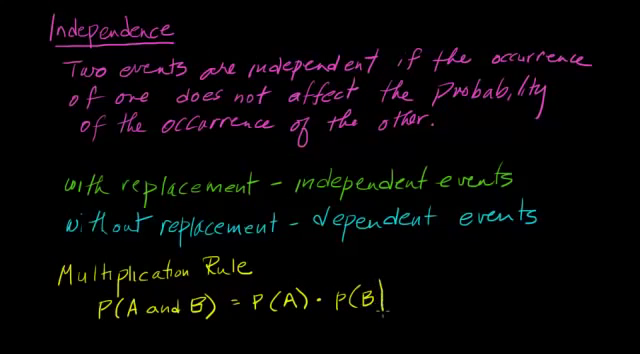 Independence
Two events are independent if the occurrence
of one does not affect the probability
of the occurrence of the other.
with replacement - independent events
without replacement - dependent events
Multiplication Rule
P(A and B) = P(A) · P(B)